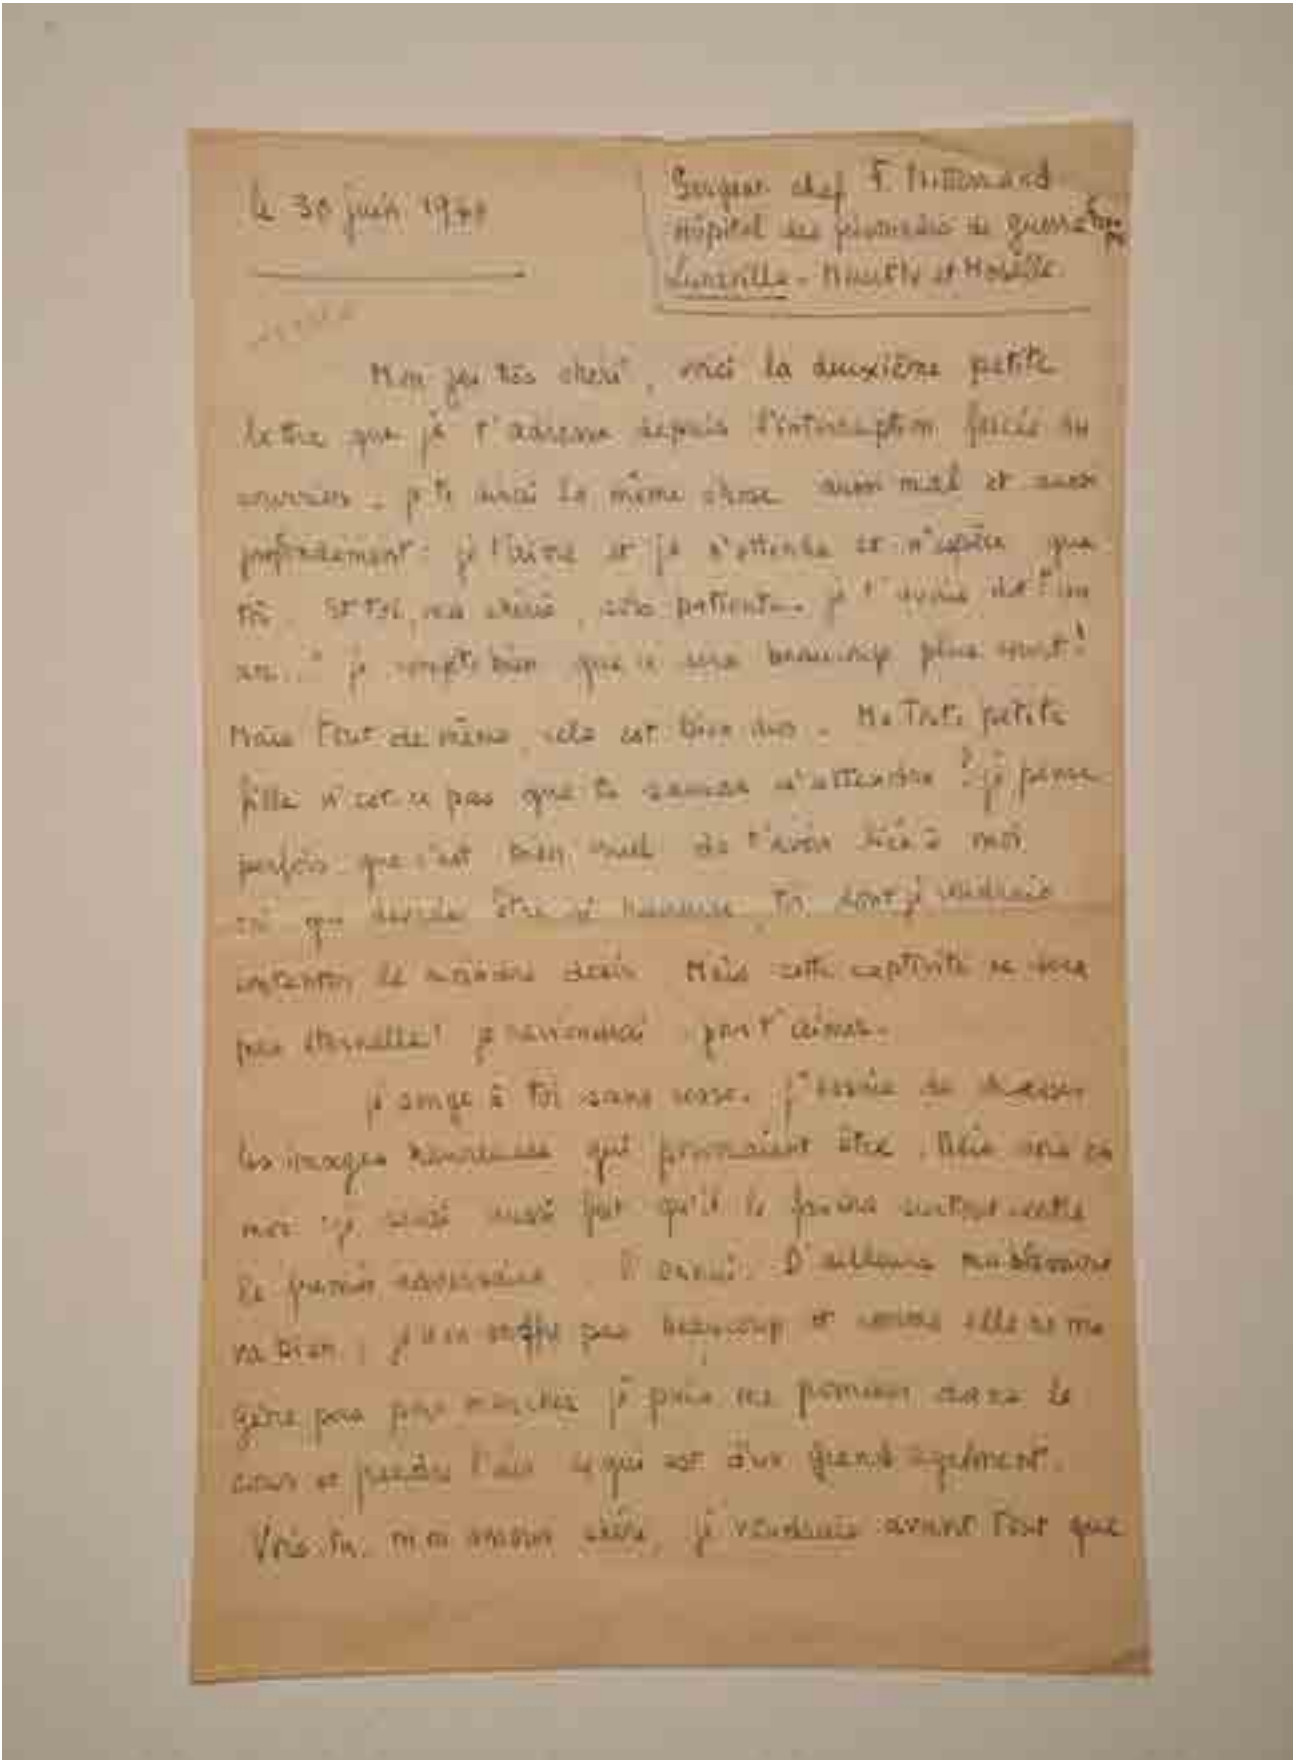 le 30 juin 1940
Sergent chef F. Mitterrand
Hôpital des prisonniers de guerre
Lunéville - Meurthe et Moselle
Mon très chéri, voici la deuxième petite
lettre que je t'adresse depuis l'interruption forcée du
courrier. je te dirai la même chose aussi mal et aussi
profondément : je t'aime et je n'attends et n'espère que
toi. Et toi, ma chérie, sois patiente. je t'avais dit "un
an..." je compte bien que ce sera beaucoup plus court !
Mais tout de même, cela est bien dur. Ma Toute petite
fille n'est-ce pas que tu sauras m'attendre ? je pense
parfois que c'est bien cruel de t'avoir liée à moi
toi qui devrais être si heureuse, toi dont je voudrais
contenter le moindre désir. Mais cette captivité ne sera
pas éternelle ! je reviendrai pour t'aimer.
je songe à toi sans cesse. j'essaie de chasser
les images heureuses qui pourraient être. Mais
moi aussi fort qu'il le faudra surtout contre
le premier adversaire : l'ennui. D'ailleurs ma blessure
va bien ; je n'en souffre pas beaucoup et comme elle ne me
gêne pas pour marcher je puis me promener dans la
cour et prendre l'air ce qui est d'un grand agrément.
Vois-tu, mon amour chéri, je voudrais avant Tout que